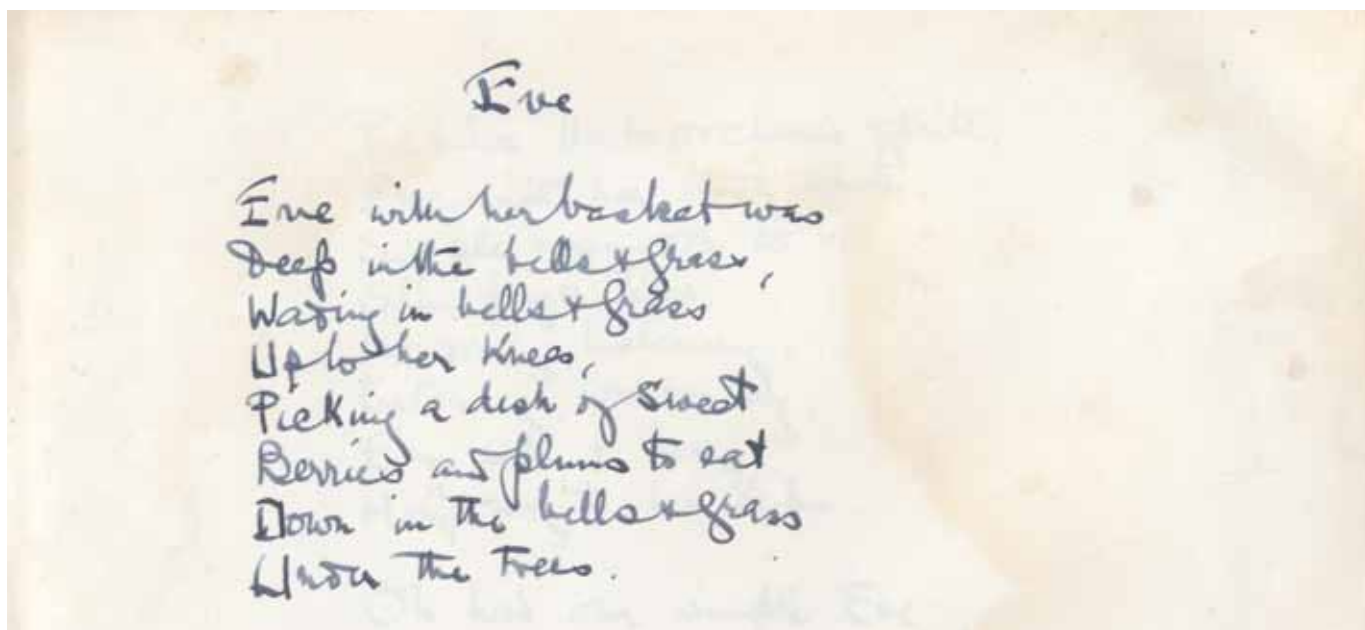 Eve
Eve with her basket was
Deep in the bells & grass,
Wading in bells & grass
Up to her knees,
Picking a dish of Sweet
Berries and plums to eat
Down in the bells & grass
Under the Trees.